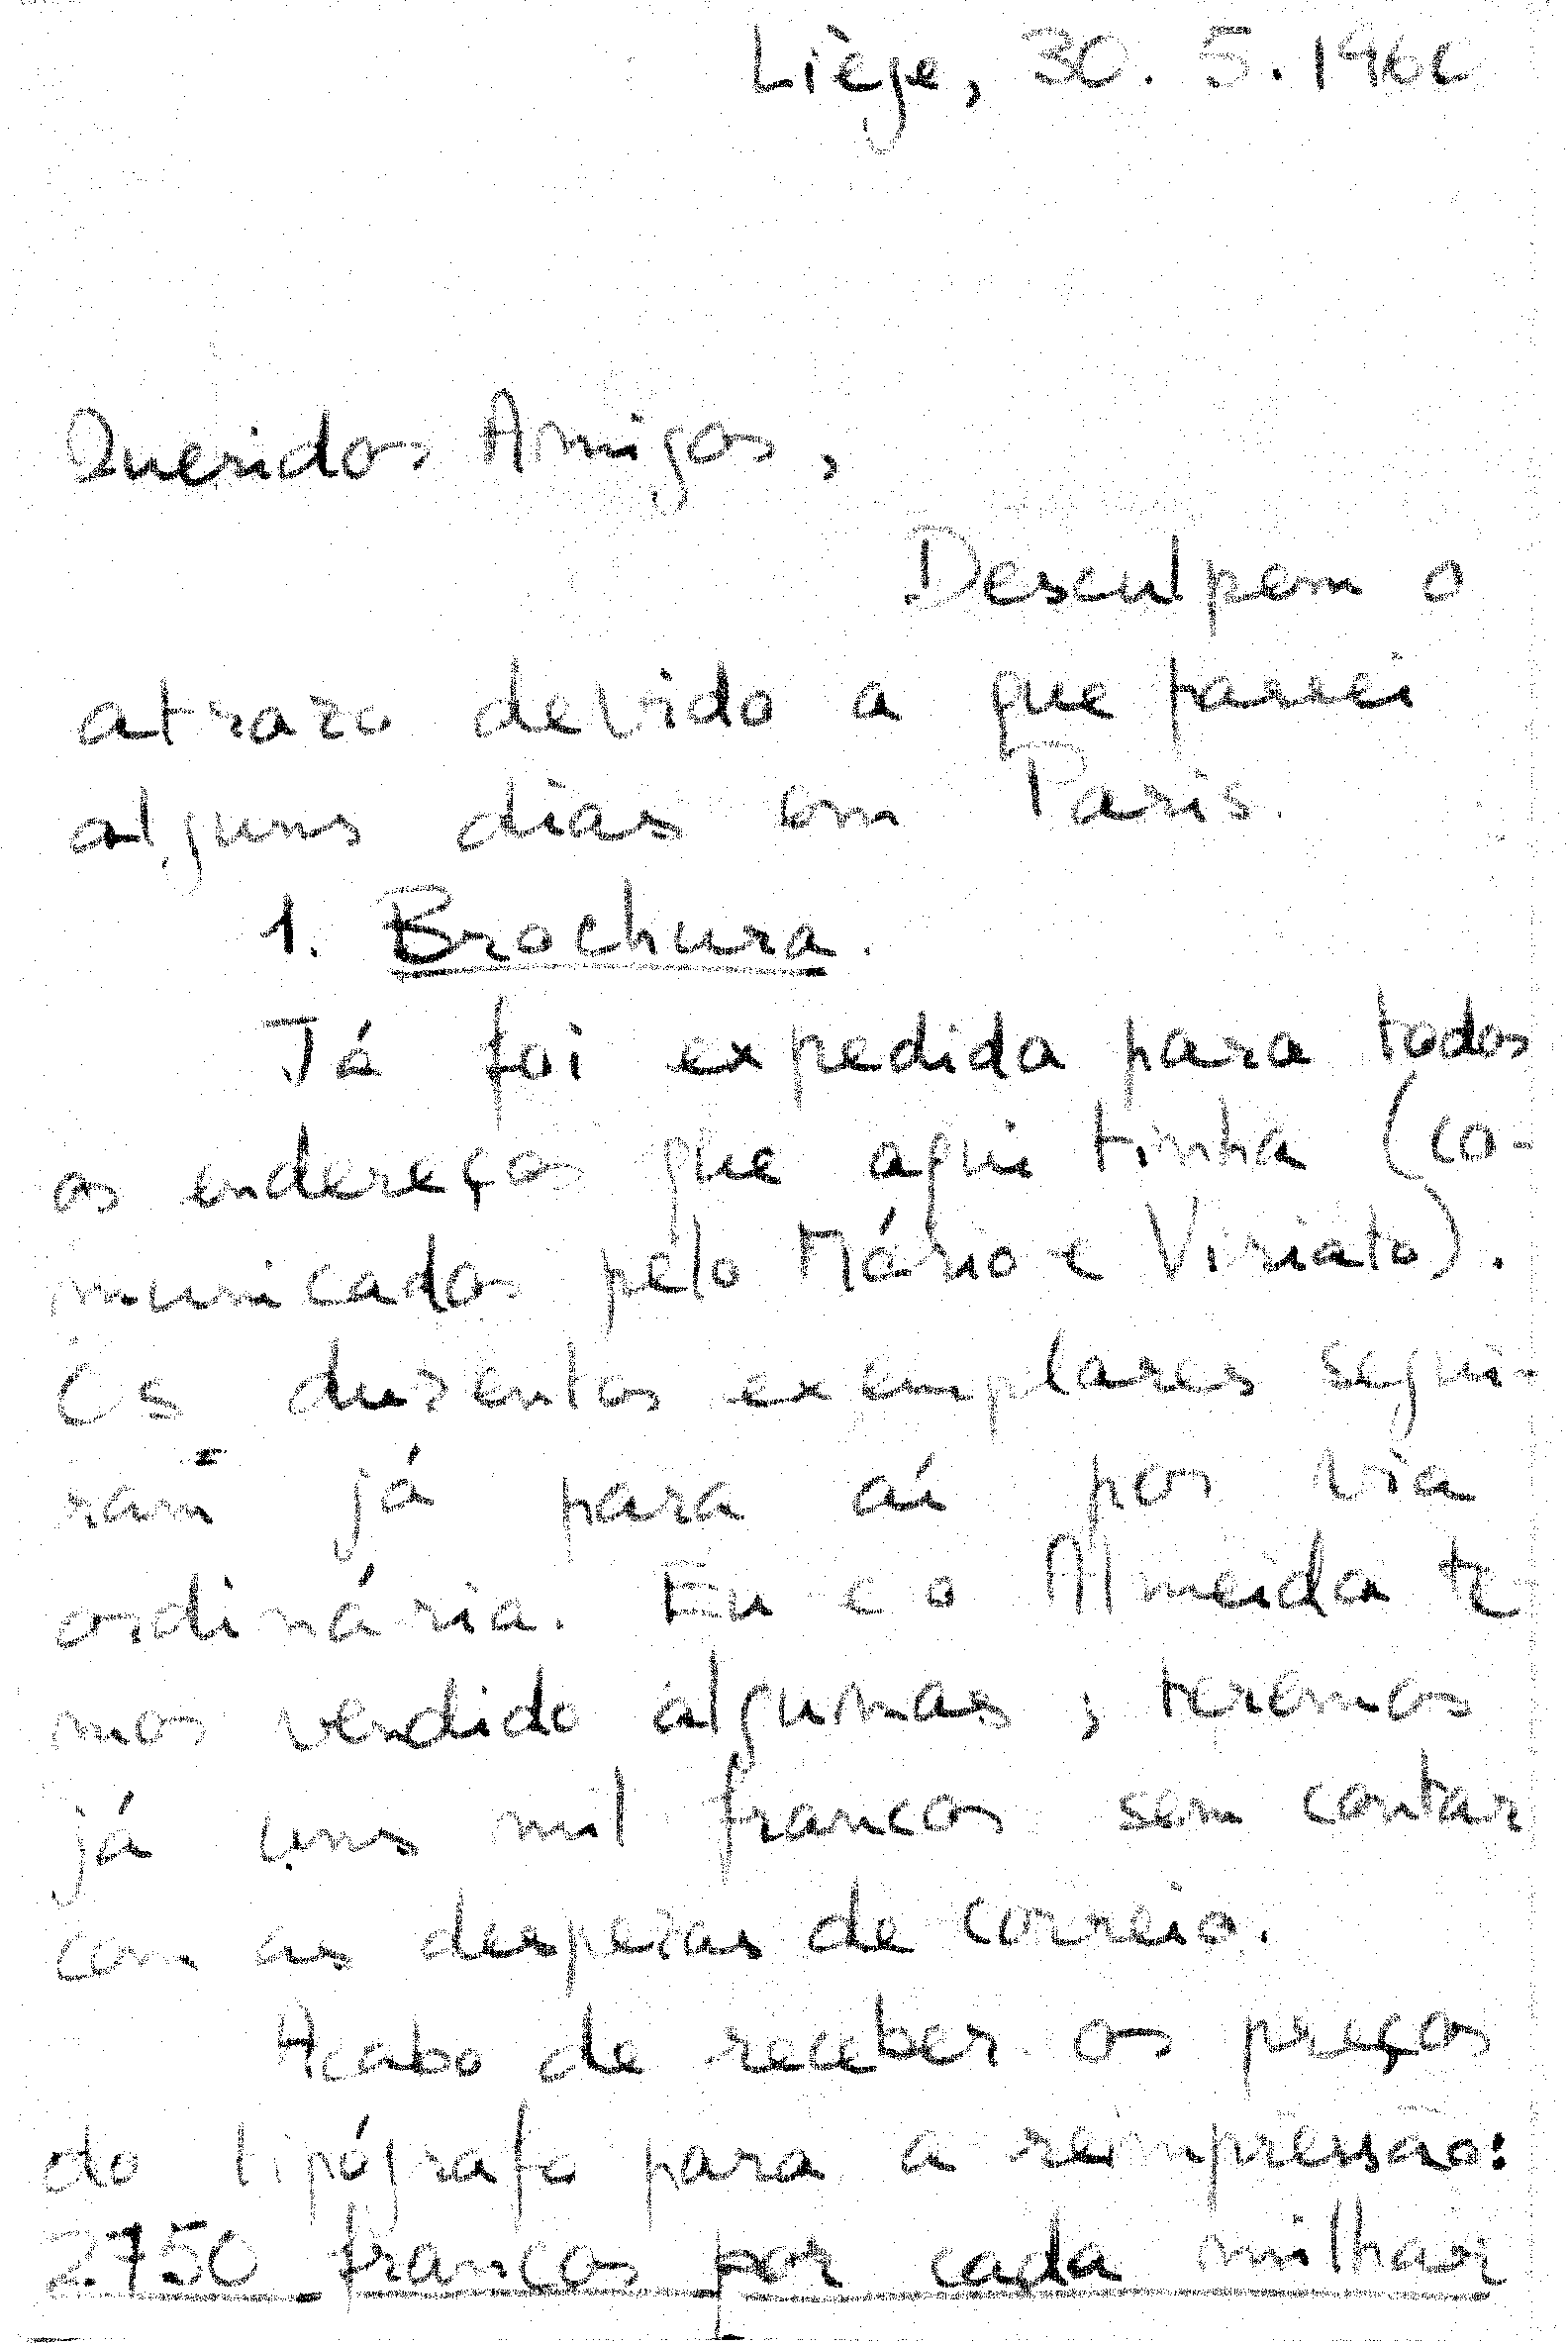 Liège, 30. 5. 1960
Queridos Amigos,
Desculpem o
atrazo devido a que passei
alguns dias em Paris.
1. Brochura.
Já foi expedida para todos
os endereços que aqui tinha (co-
municados pelo Mário e Viriato).
Os duzentos exemplares segui-
ram já para aí por via
ordinária. Eu e o Almeida te-
mos vendido algumas; teremos
já uns mil francos sem contar
com as despezas de correio.
Acabo de receber os preços
do tipógrafo para a reimpressão:
2.750 francos por cada milhar